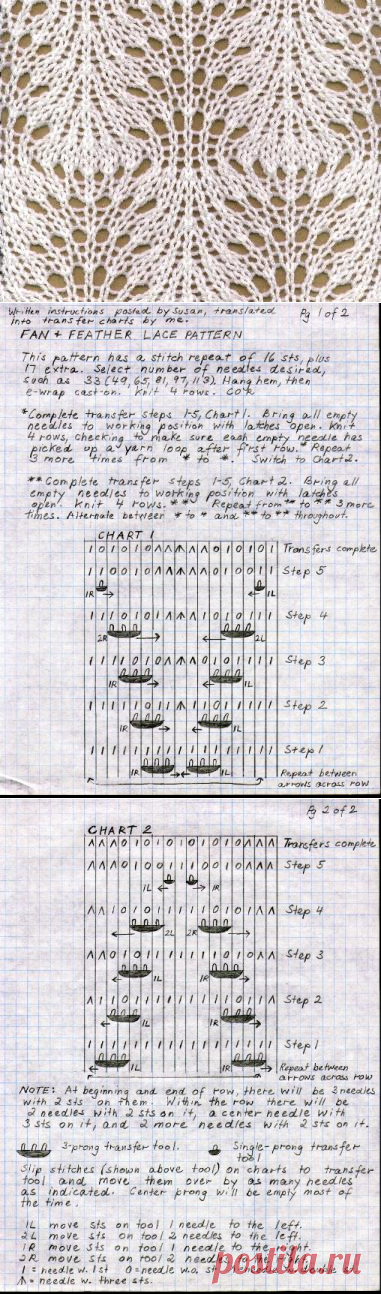 Written instructions posted by Susan, translated
into transfer charts by me.
Pg 1 of 2
FAN + FEATHER LACE PATTERN
This pattern has a stitch repeat of 16 sts, plus
17 extra. Select number of needles desired,
such as 33 (49, 65, 81, 97, 113). Hang hem, then
e-wrap cast-on. Knit 4 rows.
*Complete transfer steps 1-5, Chart 1. Bring all empty
needles to working position with latches open. Knit
4 rows, checking to make sure each empty needle has
picked up a yarn loop after first row.* Repeat
3 more times from * to *. Switch to Chart 2.
** Complete transfer steps 1-5, Chart 2. Bring all
empty needles to working position with latches
open. Knit 4 rows. ** Repeat from ** to ** 3 more
times. Alternate between * to * and ** to ** throughout.
CHART 1
Transfers complete
Step 5
1R 1L
Step 4
2R 2L
Step 3
1R 1L
Step 2
1R 1L
Step 1
1R 1L
Repeat between
arrows across row
Pg 2 of 2
CHART 2
Transfers complete
Step 5
1L 1R
Step 4
2L 2R
Step 3
1L 1R
Step 2
1L 1R
Step 1
1L 1R
Repeat between
arrows across row
NOTE: At beginning and end of row, there will be 3 needles
with 2 sts on them. Within the row there will be
2 needles with 2 sts on it, a center needle with
3 sts on it, and 2 more needles with 2 sts on it.
3-prong transfer tool.
Single-prong transfer
tool
Slip stitches (shown above tool) on charts to transfer
tool and move them over by as many needles
as indicated. Center prong will be empty most of
the time.
1L move sts on tool 1 needle to the left.
2L move sts on tool 2 needles to the left.
1R move sts on tool 1 needle to the right.
2R move sts on tool 2 needles to the right.
1 = needle w. 1 st O = needle w.o. st
= needle w. three sts.
postila.ru